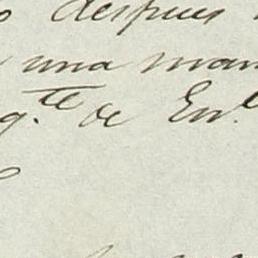 despues
una man
g.te de En.e